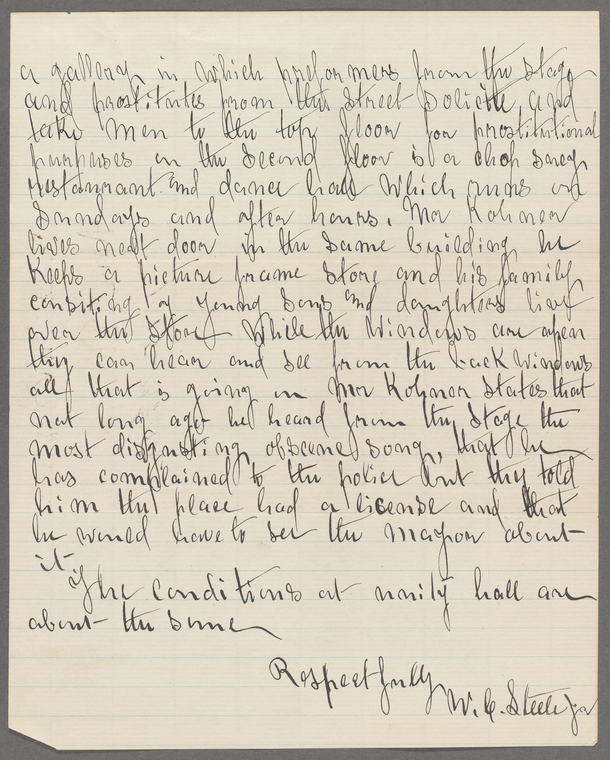 a gallery in which preformers from the stage
and prostitutes from the street solicitte, and
take men to the top floor for prostitutional
purposes on the second floor is a chop suey
restaurant and dance hall which runs on
Sundays and after hours. Mr Kohner
lives next door in the same building he
keeps a picture frame store and his family
consiting of young sons and daughters live
over the store while the windows are open
they can hear and see from the back windows
all that is going on Mr Kohner states that
not long ago he heard from the stage the
most disgusting obscene song, that he
has complained to the police but they told
him the place had a license and that
he would have to see the mayor about
it.
The conditions at unity hall are
about the same
Respectfully
W. C. Steele Jr